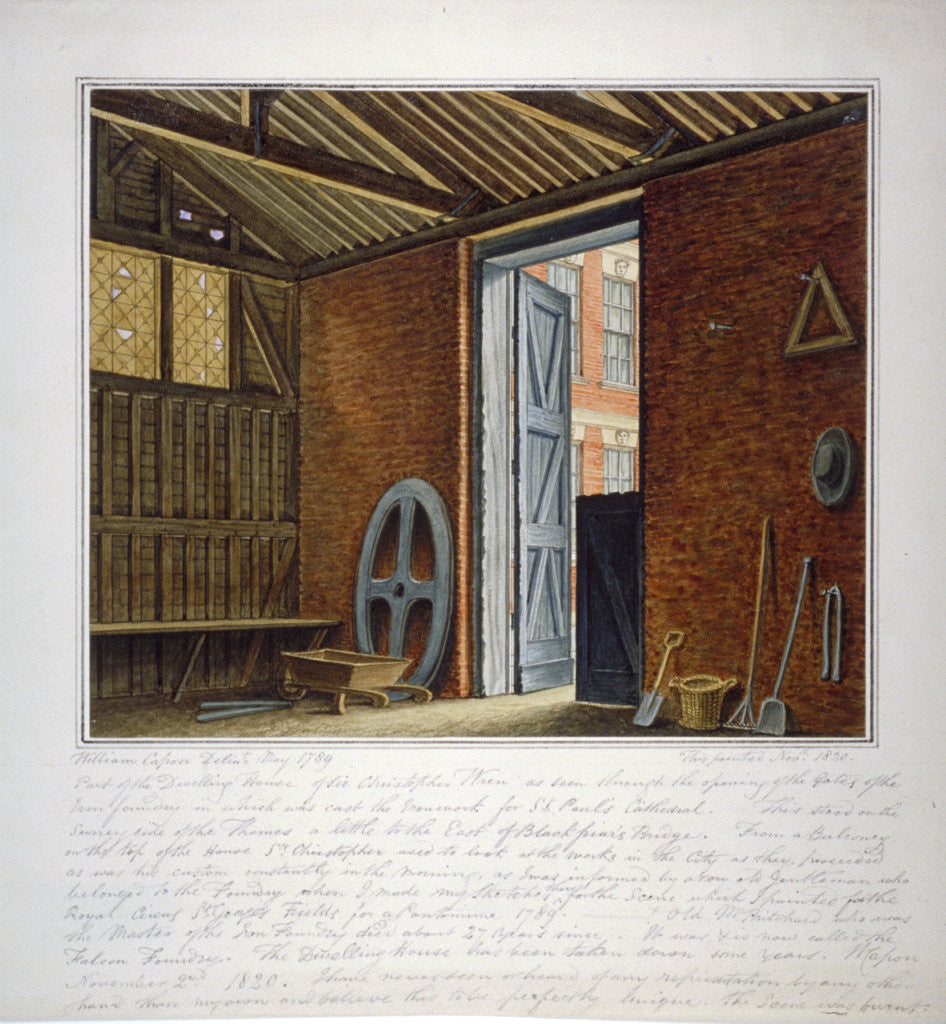 William Capon Delint. May 1789
This painted Novr. 1820.
Part of the Dwelling House of Sir Christopher Wren as seen through the opening of the Gates of the
Iron founders in which was cast the Ironwork for St. Paul's Cathedral. This stood on the
Surrey side of the Thames a little to the East of Blackfriars Bridge. From a Balcony
on the top of the House Sr. Christopher used to look at the works in the City as they proceeded
as was his custom constantly in the morning, as I was informed by a very old Gentleman who
belonged to the Foundry when I made my Sketches there for the Scene which I painted for the
Royal Circus St. George's Fields for a Pantomime 1789. Old Mr Pritchard who was
the Master of the Iron Foundry died about 27 years since. It was & is now called the
Falcon Foundry. The Dwelling House has been taken down some years. W Capon
November 2nd 1820. I have never seen or heard of any representation by any other
hand than my own and believe this to be perfectly Unique. The Scene was burnt.